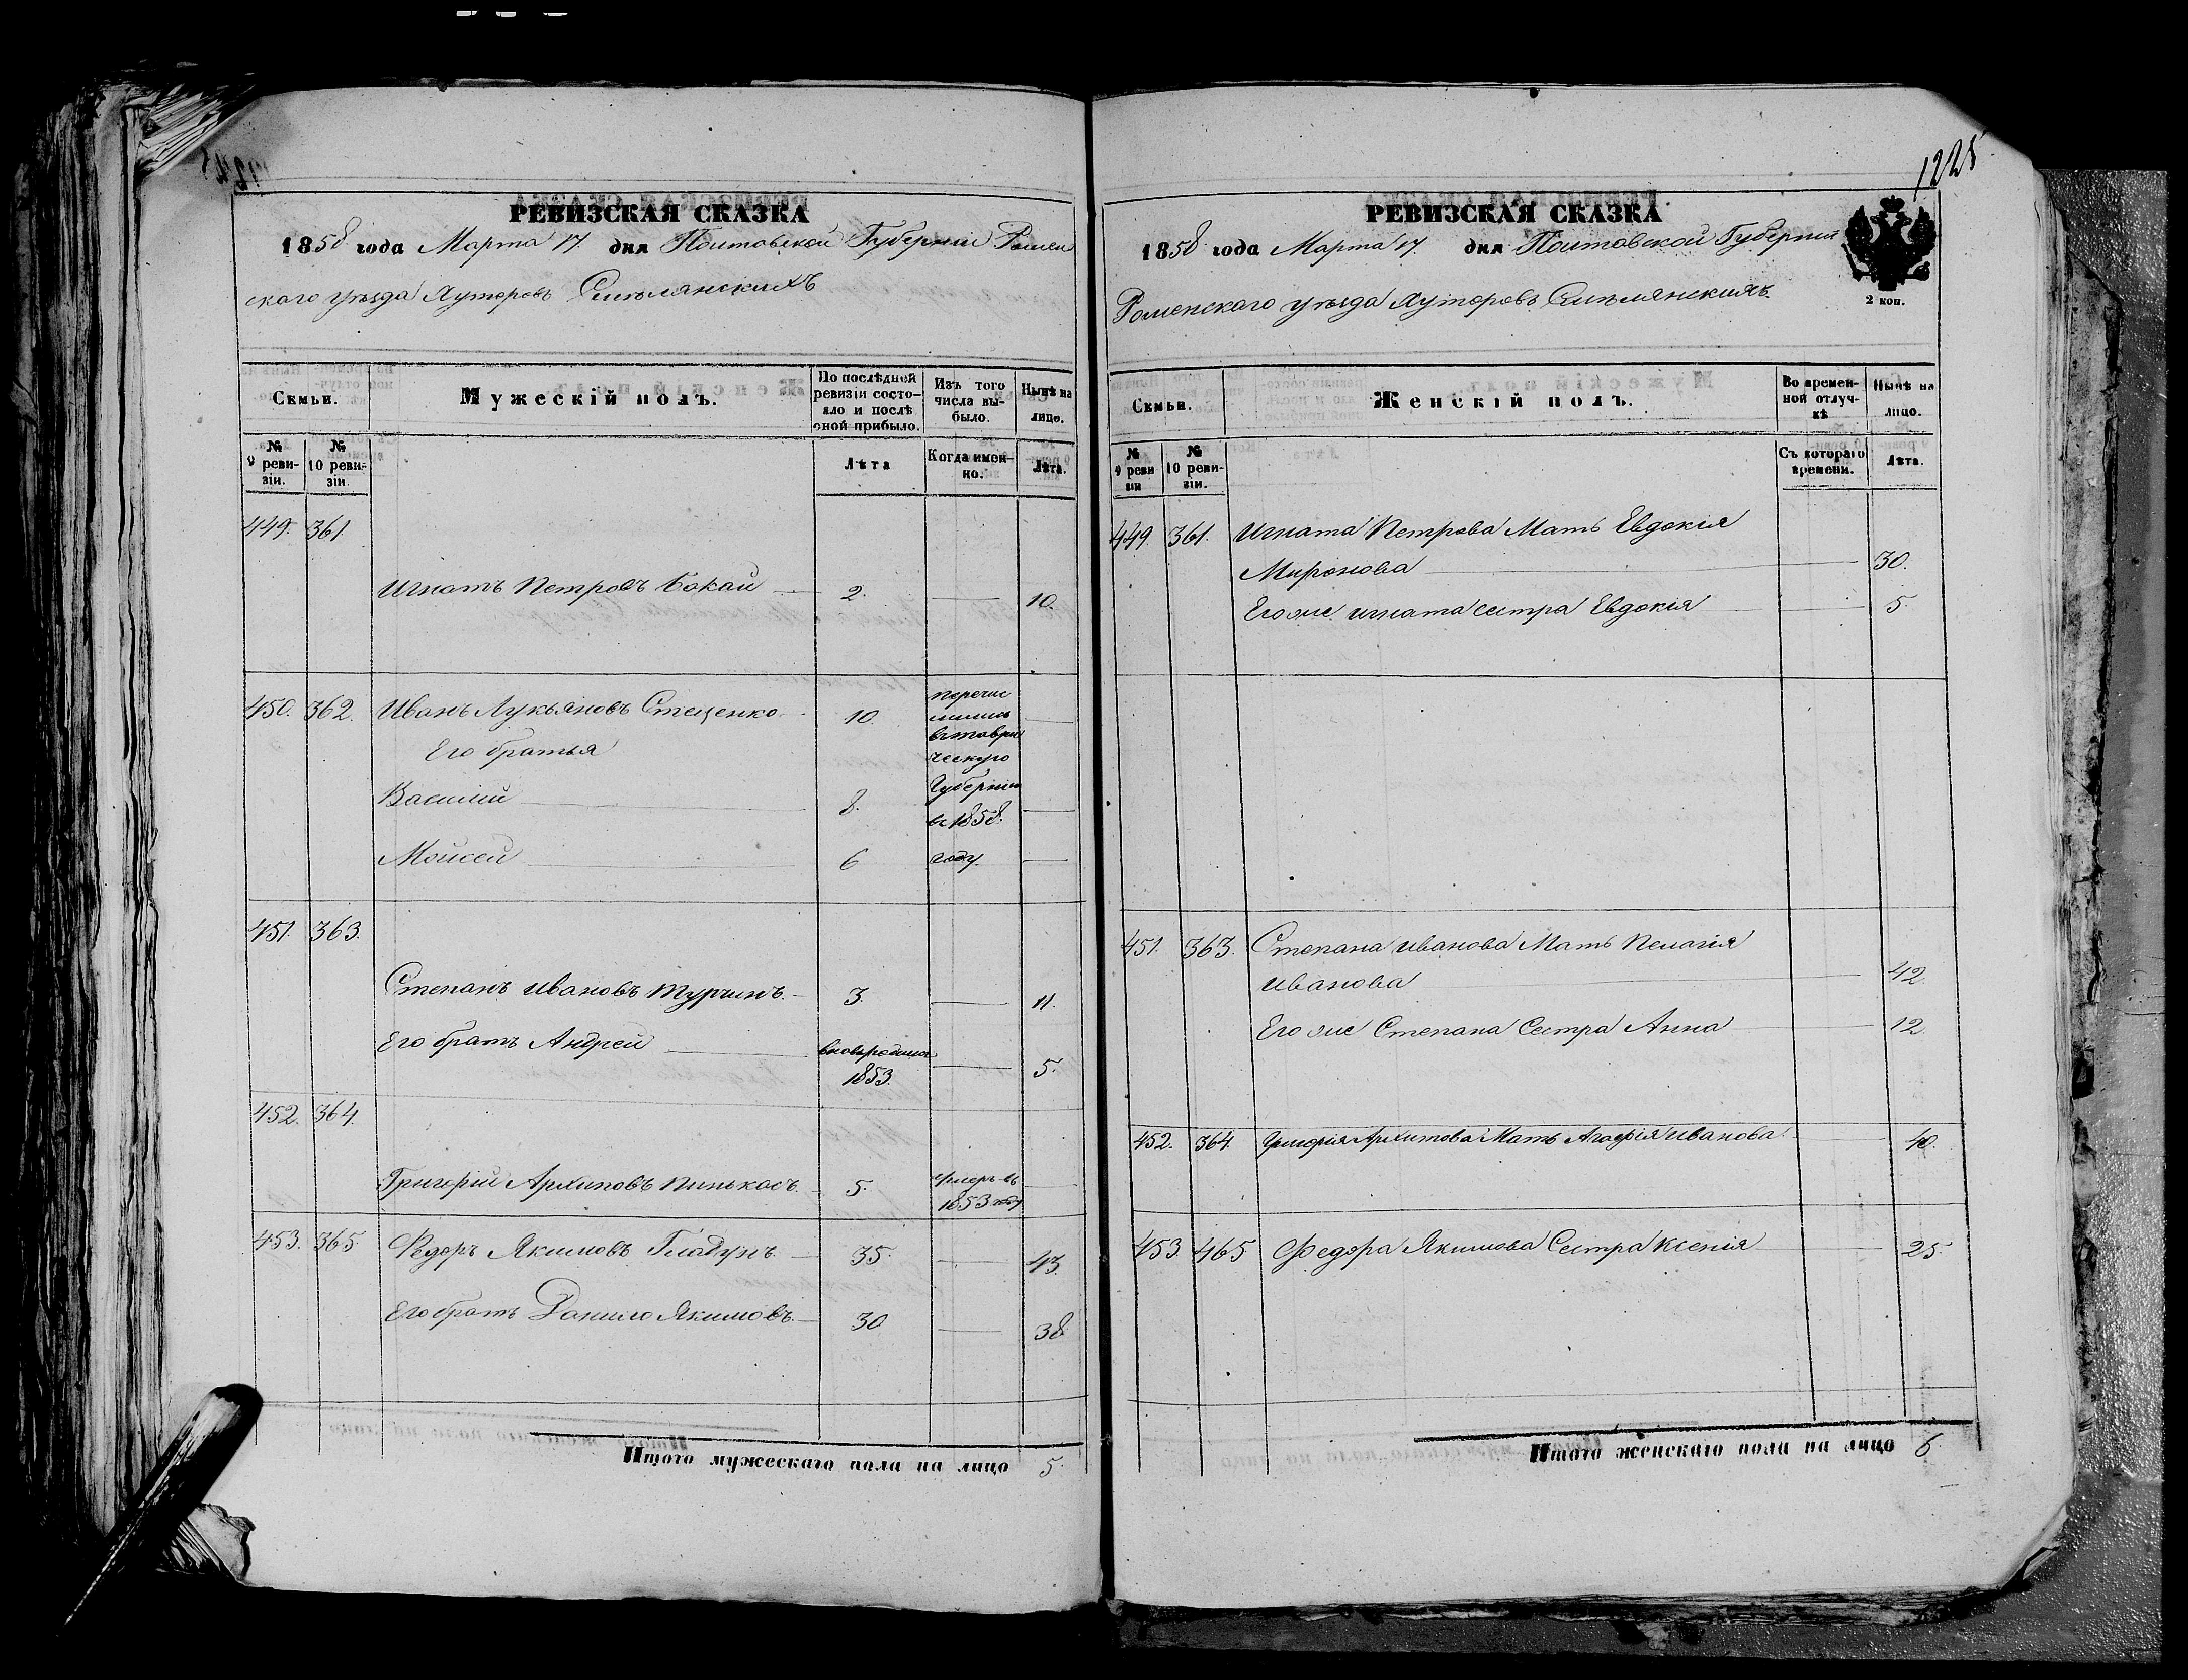 РЕВИЗСКАЯ СКАЗКА
1858 года Марта 17. дня Полтавской Губерніи Ромен
скаго уѣзда Хуторовъ Смѣлянскихъ
Семьи.
Мужескій полъ.
По послѣдней ревизіи состо-
яло и послѣ
оной прибыло.
Изъ того
числа вы-
было.
Нынѣ на
лицо.
№
9 реви-
зіи.
№
10 реви-
зіи.
Лѣта
Когда имен-
но.
Лѣта.
449. 361.
Игнатъ Петровъ Бокай 2. 10.
450. 362. Иванъ Лукьяновъ Стеценко 10.
перечис
лились
въ таври
ческую
Губернію
въ 1858.
году.
Его братья
Василій 8.
Мойсей 6
451. 363.
Степанъ Ивановъ Турчинъ 3. 11.
Его братъ Андрей
вновьродился
1853. 5.
452. 364.
Григорій Архиповъ Пинькасъ. 5.
умеръ въ
1853 году
453. 365. Федоръ Якимовъ Гладунъ 35. 43.
Его братъ Данило Якимовъ 30 38
Итого мужескаго пола на лицо 5.
1225
РЕВИЗСКАЯ СКАЗКА
1858 года Марта 17. дня Полтавской Губерніи
Роменскаго уѣзда Хуторовъ Смѣлянскихъ.
2 коп.
Семьи.
Женскій полъ.
Во времен-
ной отлуч-
кѣ
Нынѣ на
лицо.
№
9 реви
зіи
№
10 реви-
зіи.
Съ котораго
времени.
Лѣта.
449. 361. Игната Петрова Мать Евдокія
Миронова 30.
Его же Игната сестра Евдокія 5.
451. 363. Степана Иванова Мать Пелагія
Иванова 42.
Его же Степана Сестра Анна 12.
452. 364. Григорія Архипова Мать Агафія Иванова 40.
453. 465 Федора Якимова Сестра Ксенія 25.
Итого женскаго пола на лицо 6.